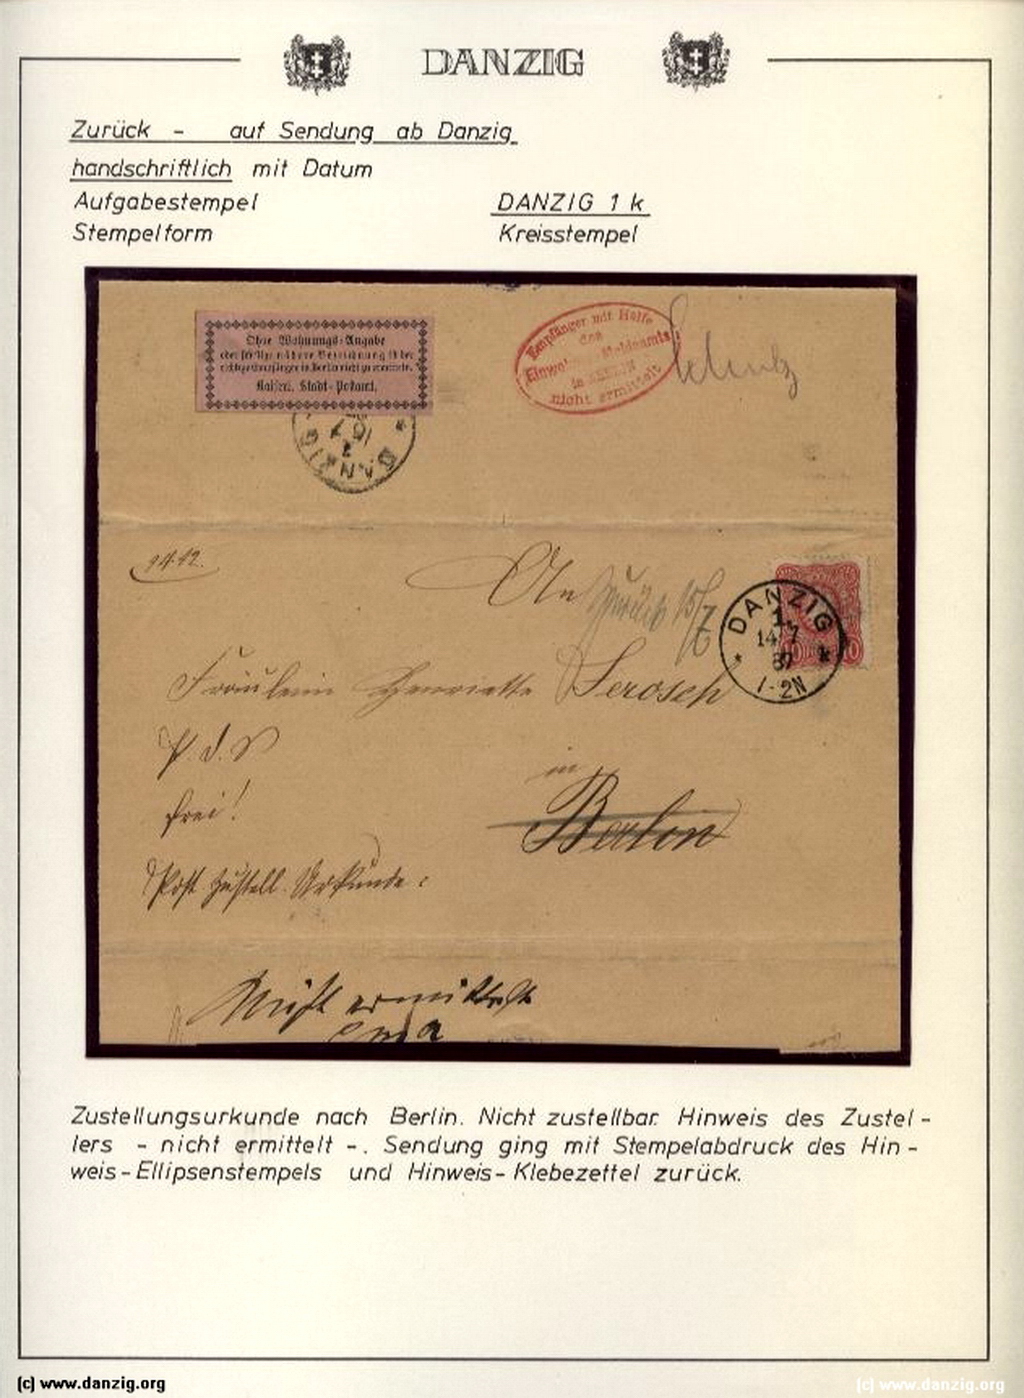 DANZIG
Zurück - auf Sendung ab Danzig
handschriftlich mit Datum
Aufgabestempel DANZIG 1 k
Stempelform Kreisstempel
Ohne Wohnungs-Angabe
oder sonstige nähere Bezeichnung ist der
richtige Empfänger in Berlin nicht zu ermitteln.
Kaiserl. Stadt-Postamt.
Empfänger mit Hülfe
des
Einwohner-Meldeamts
in BERLIN
nicht ermittelt
DANZIG
An Zurück 15/7
DANZIG
1.
14/7
87
* k
1-2N
10
Fräulein Henriette Serosch
in
frei!
Berlin
Post Zustell. Urkunde.
Nicht ermittelt
Zustellungsurkunde nach Berlin. Nicht zustellbar. Hinweis des Zustel-
lers - nicht ermittelt -. Sendung ging mit Stempelabdruck des Hin-
weis-Ellipsenstempels und Hinweis-Klebezettel zurück.
(c) www.danzig.org (c) www.danzig.org